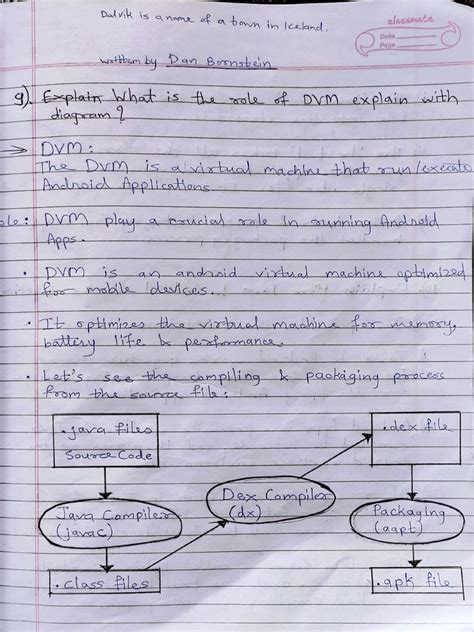 Dalvik is a name of a town in Iceland.
classmate
Date
Page
written by Dan Bornstein
9). Explain What is the role of DVM explain with
diagram?
→ DVM:
The DVM is a virtual machine that run/execute
Android Applications.
ole: DVM play a crucial role in running Android
Apps.
• DVM is an android virtual machine optimized
for mobile devices.
• It optimizes the virtual machine for memory,
battery life & performance.
• Let's see the compiling & packaging process
from the source file:
.java files
Source Code
.dex file
Dex Compiler
(dx)
Java Compiler
(javac)
Packaging
(aapt)
.class files
.apk file